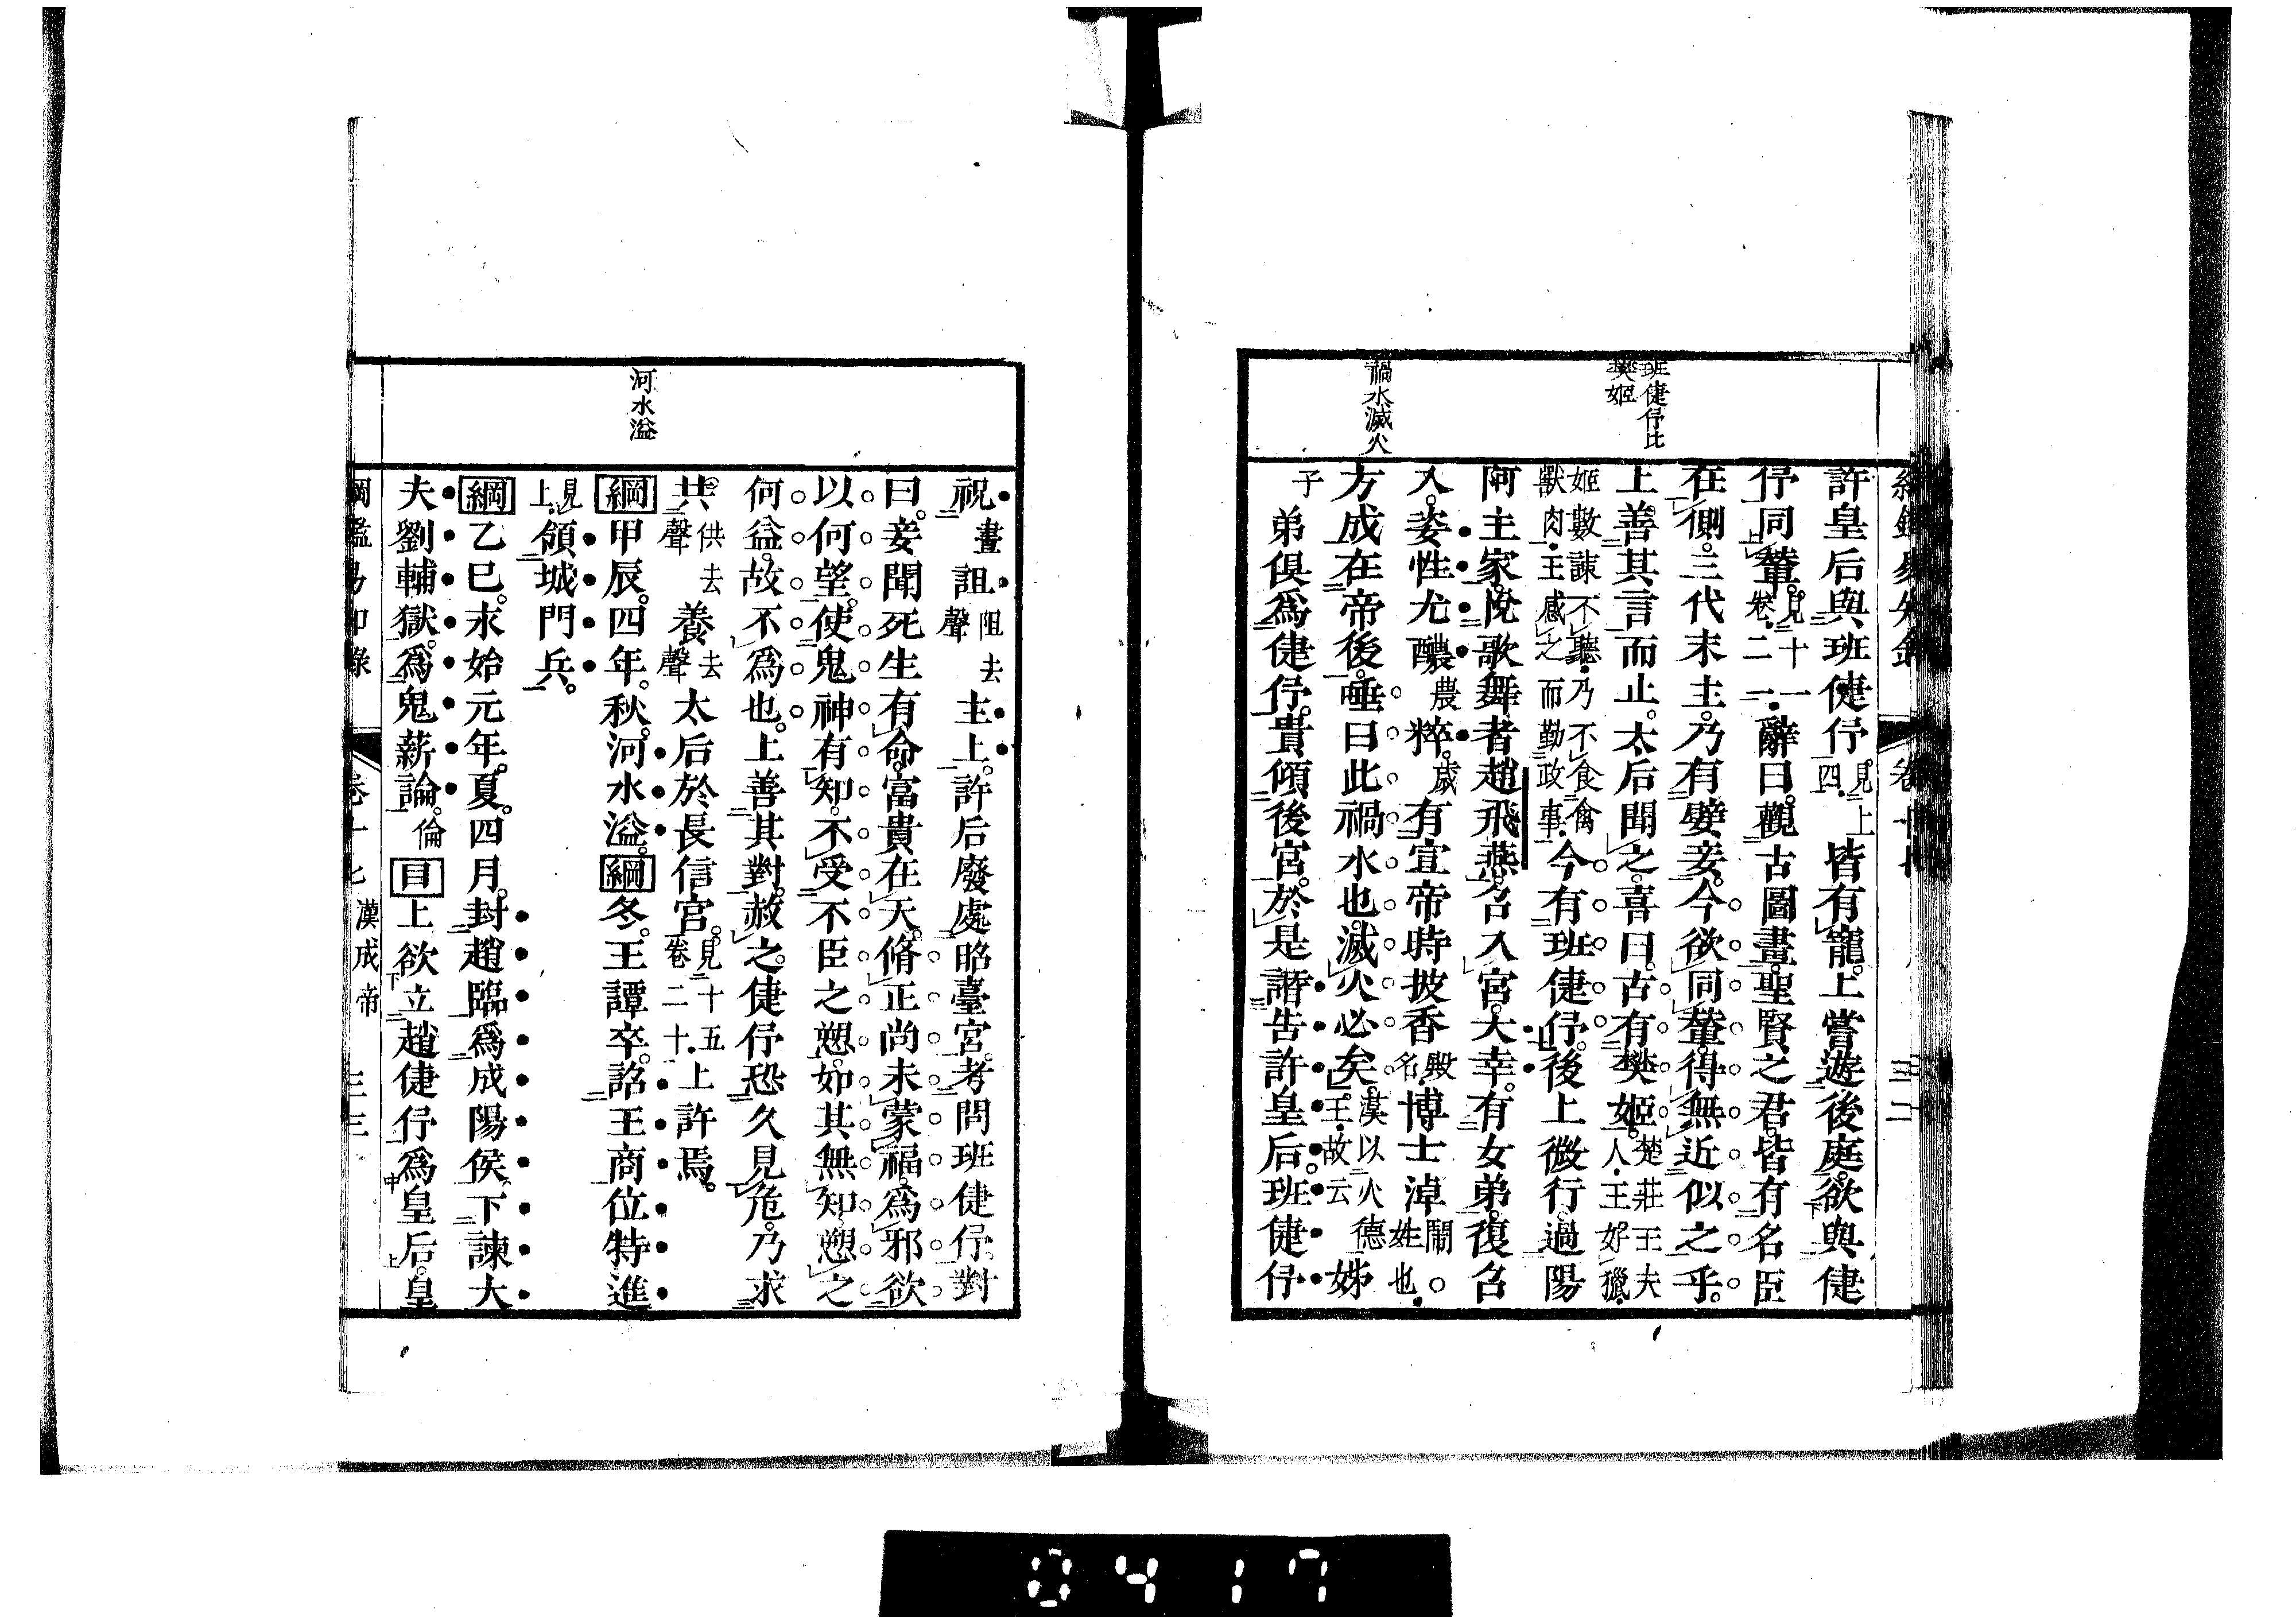 班倢伃比
樊姬
禍水滅火
許皇后與班倢伃見上四皆有寵上嘗遊後庭欲與倢
伃同輦見十一卷二一辭曰觀古圖畫聖賢之君皆有名臣
在側三代末主乃有嬖妾今欲同輦得無近似之乎
上善其言而止太后聞之喜曰古有樊姬楚莊王夫人王好獵
姬數諫不聽乃不食禽獸肉王感之而勤政事今有班倢伃後上微行過陽
阿主家悅歌舞者趙飛燕召入宮大幸有女弟復召
入姿性尤醲農粹歲有宣帝時披香殿名博士淖鬧姓也
方成在帝後唾曰此禍水也滅火必矣漢以火德王故云姊
子弟俱爲倢伃貴傾後宮於是譖告許皇后班倢伃
卷十七
三二
河水溢
祝晝詛阻去聲主上許后廢處昭臺宮考問班倢伃對
曰妾聞死生有命富貴在天脩正尚未蒙福爲邪欲
以何望使鬼神有知不受不臣之愬如其無知愬之
何益故不爲也上善其對赦之倢伃恐久見危乃求
共供去聲養去聲太后於長信宮見十五卷二十上許焉
綱甲辰四年秋河水溢綱冬王譚卒詔王商位特進
見上領城門兵
綱乙巳永始元年夏四月封趙臨爲成陽侯下諫大
夫劉輔獄爲鬼薪論倫目上欲立趙倢伃爲皇后皇
綱鑑易知錄
卷十七
漢成帝
三三
0417